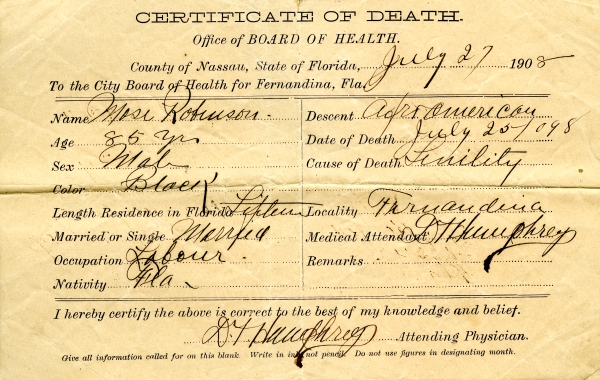 CERTIFICATE OF DEATH.
Office of BOARD OF HEALTH.
County of Nassau, State of Florida, July 27 1908
To the City Board of Health for Fernandina, Fla.
Name Mose Robinson.
Age 85 yrs
Sex Male
Color Black
Length Residence in Florida Lifetime
Married or Single Married
Occupation Labour
Nativity Fla
Descent Afro American
Date of Death July 25/098
Cause of Death Senility
Locality Fernandina
Medical Attendant D Humphrey
Remarks
I hereby certify the above is correct to the best of my knowledge and belief.
Humphrey Attending Physician.
Give all information called for on this blank. Write in ink, not pencil. Do not use figures in designating month.